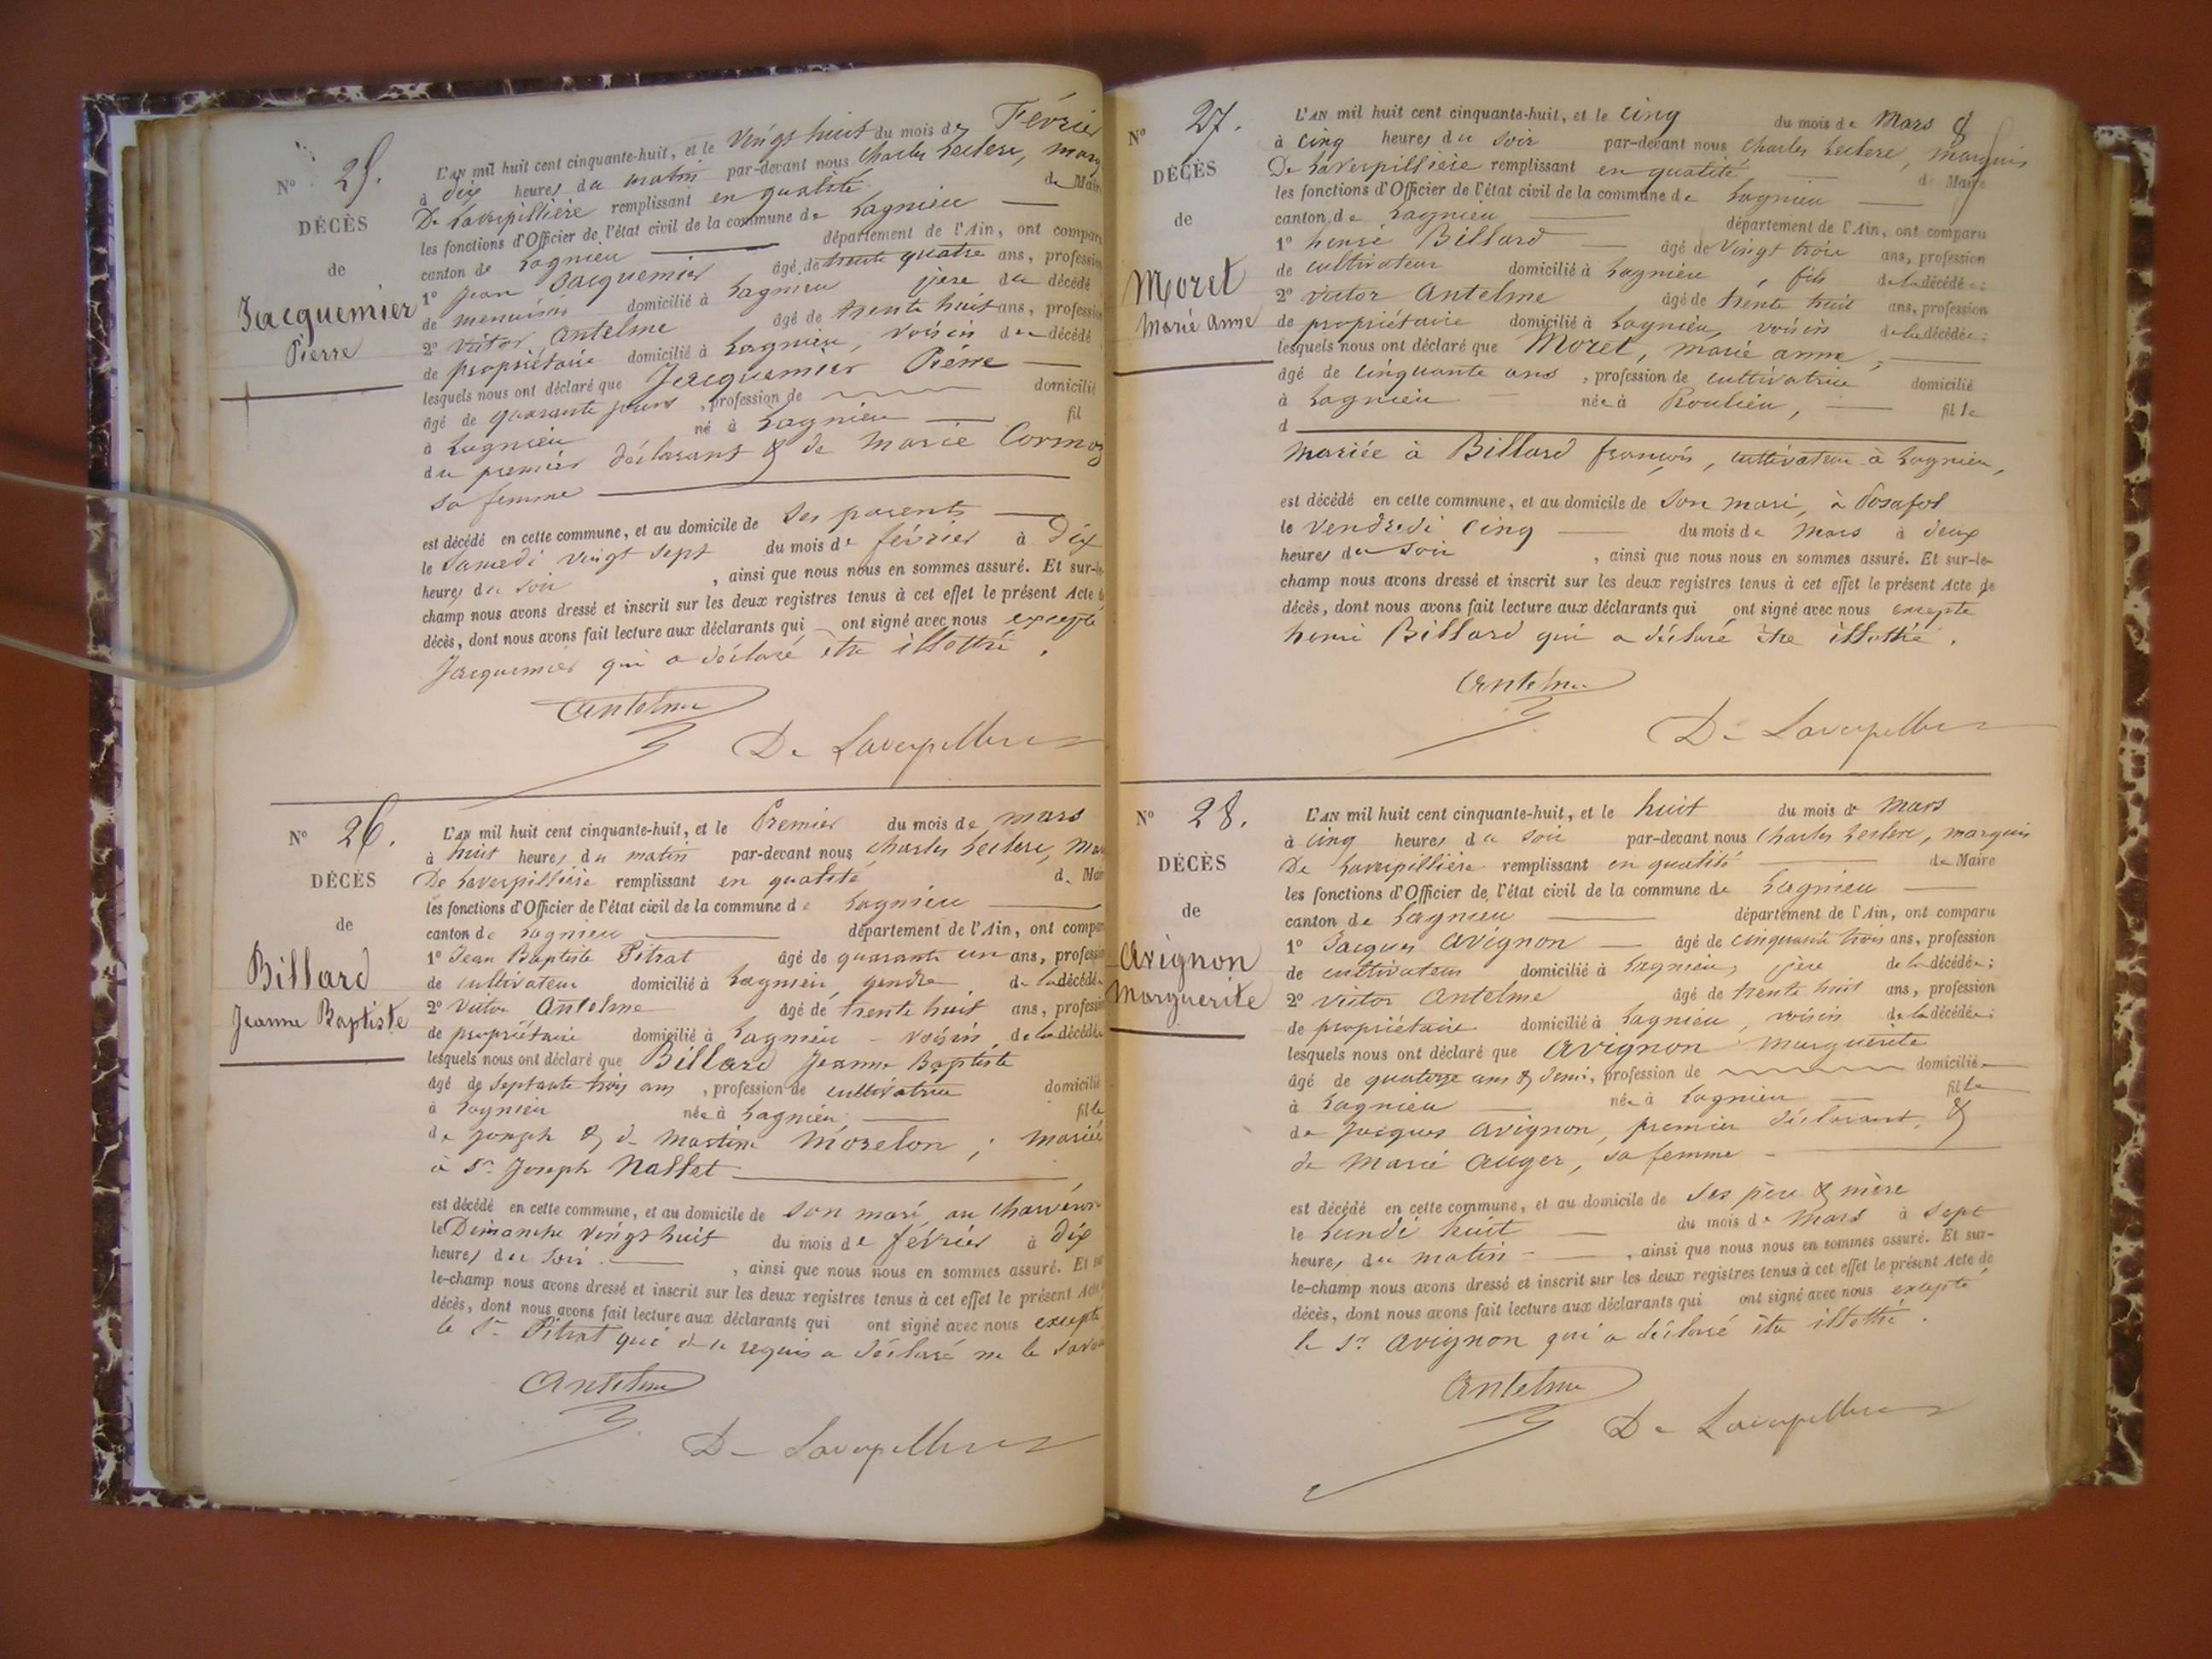 N° 25.
DÉCÈS
de
Jacquemier
Pierre
L'AN mil huit cent cinquante-huit, et le vingt huit du mois de Février
à dix heures du matin par-devant nous Charles Leclerc, marq
De Laverpillière remplissant en qualité de Maire
les fonctions d'Officier de l'état civil de la commune de Lagnieu
canton de Lagnieu département de l'Ain, ont comparu
1° Jean Jacquemier âgé de trente quatre ans, profession
de menuisier domicilié à Lagnieu père du décédé
2° Victor Antelme âgé de trente huit ans, profession
de propriétaire domicilié à Lagnieu, voisin du décédé
lesquels nous ont déclaré que Jacquemier Pierre
âgé de quarante jours, profession de domicilié
à Lagnieu né à Lagnieu fil
du premier déclarant & de Marie Cormoz
sa femme
est décédé en cette commune, et au domicile de ses parents
le samedi vingt sept du mois de février à dix
heures du soir, ainsi que nous nous en sommes assuré. Et sur-le-
champ nous avons dressé et inscrit sur les deux registres tenus à cet effet le présent Acte de
décès, dont nous avons fait lecture aux déclarants qui ont signé avec nous excepté
Jacquemier qui a déclaré être illettré.
Antelme
De Laverpilliere
N° 26.
DÉCÈS
de
Billard
Jeanne Baptiste
L'AN mil huit cent cinquante-huit, et le Premier du mois de mars
à huit heures du matin par-devant nous Charles Leclerc, Mar
De Laverpillière remplissant en qualité de Mair
les fonctions d'Officier de l'état civil de la commune de Lagnieu
canton de Lagnieu département de l'Ain, ont compar
1° Jean Baptiste Pitrat âgé de quarante un ans, profession
de cultivateur domicilié à Lagnieu, gendre de la décédée
2° Victor Antelme âgé de trente huit ans, profession
de propriétaire domicilié à Lagnieu - voisin de la décédée
lesquels nous ont déclaré que Billard Jeanne Baptiste
âgé de septante trois ans, profession de cultivatrice domicilié
à Lagnieu née à Lagnieu, fille
de joseph & de Martine Morelon; mariée
à Sr Joseph Nallet
est décédé en cette commune, et au domicile de son mari, au
le Dimanche vingt huit du mois de février à dix
heures du soir, ainsi que nous nous en sommes assuré. Et sur
le-champ nous avons dressé et inscrit sur les deux registres tenus à cet effet le présent Acte
décès, dont nous avons fait lecture aux déclarants qui ont signé avec nous excepté
le Sr Pitrat qui de ce requis a déclaré ne le savoir
Antelme
De Laverpilliere
N° 27.
DÉCÈS
de
Moret
Marie Anne
L'AN mil huit cent cinquante-huit, et le cinq du mois de Mars 8
à cinq heures du soir par-devant nous Charles Leclerc, marquis
De Laverpillière remplissant en qualité de Maire
les fonctions d'Officier de l'état civil de la commune de Lagnieu
canton de Lagnieu département de l'Ain, ont comparu
1° henri Billard âgé de vingt trois ans, profession
de cultivateur domicilié à Lagnieu, fils de la décédée;
2° victor Antelme âgé de trente huit ans, profession
de propriétaire domicilié à Lagnieu, voisin de la décédée;
lesquels nous ont déclaré que Moret, marie anne,
âgé de cinquante ans, profession de cultivatrice domicilié
à Lagnieu née à Roulieu, fille
d
mariée à Billard françois, cultivateur à Lagnieu,
est décédé en cette commune, et au domicile de son mari, à Posafol
le vendredi cinq du mois de mars à deux
heures du soir, ainsi que nous nous en sommes assuré. Et sur-le-
champ nous avons dressé et inscrit sur les deux registres tenus à cet effet le présent Acte de
décès, dont nous avons fait lecture aux déclarants qui ont signé avec nous excepté
henri Billard qui a déclaré être illettré.
Antelme
De Laverpilliere
N° 28.
DÉCÈS
de
Avignon
Marguerite
L'AN mil huit cent cinquante-huit, et le huit du mois de Mars
à cinq heures du soir par-devant nous Charles Leclerc, marquis
De Laverpillière remplissant en qualité de Maire
les fonctions d'Officier de l'état civil de la commune de Lagnieu
canton de Lagnieu département de l'Ain, ont comparu
1° Jacques Avignon âgé de cinquante trois ans, profession
de cultivateur domicilié à Lagnieu, père de la décédée;
2° Victor Antelme âgé de trente huit ans, profession
de propriétaire domicilié à Lagnieu, voisin de la décédée;
lesquels nous ont déclaré que Avignon Marguerite
âgé de quatorze ans & demi, profession de domiciliée
à Lagnieu née à Lagnieu fille
de Jacques Avignon, premier déclarant, &
de Marie Auger, sa femme
est décédé en cette commune, et au domicile de ses père & mère
le Lundi huit du mois de Mars à sept
heures du matin, ainsi que nous nous en sommes assuré. Et sur-
le-champ nous avons dressé et inscrit sur les deux registres tenus à cet effet le présent Acte de
décès, dont nous avons fait lecture aux déclarants qui ont signé avec nous excepté
le Sr Avignon qui a déclaré être illettré.
Antelme
De Laverpilliere